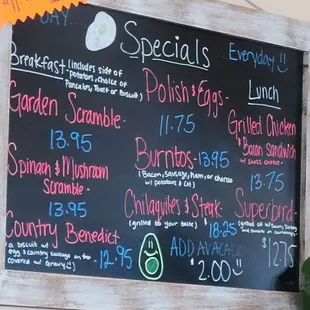 DAY...
Specials
Everyday
Breakfast (includes side of
potatoes, choice of
Pancakes, Toast or Biscuit)
Garden Scramble-
13.95
Spinach & Mushroom
Scramble-
13.95
Country Benedict
(a biscuit w/
egg & country sausage on top
covered w/ Gravy)
12.95
Polish & Eggs-
11.75
Burritos-13.95
(Bacon, Sausage, Ham, or Chorizo
w/ potatoes &
Chilaquiles & Steak-
(grilled to your taste)
18.25
ADD AVACADO
$2.00
Lunch
Grilled Chicken
& Bacon Sandwich
w/ Swiss cheese-
13.75
Superbird-
(grilled
w/ Bacon, Turkey,
and tomato on
$12.75